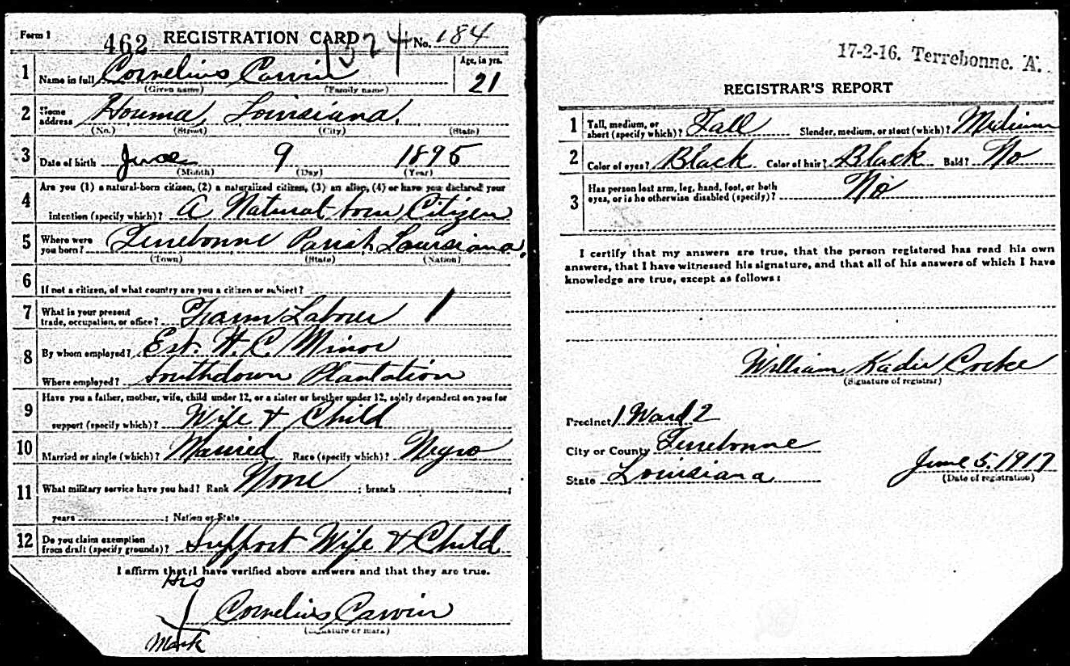 Form 1 462 REGISTRATION CARD 1574 No. 184
1 Name in full Cornelius Carvin Age, in yrs. 21
(Given name) (Family name)
2 Home address Houma, Louisiana.
(No.) (Street) (City) (State)
3 Date of birth June 9 1895
(Month) (Day) (Year)
4 Are you (1) a natural-born citizen, (2) a naturalized citizen, (3) an alien, (4) or have you declared your
intention (specify which)? A Natural born Citizen
5 Where were you born? Terrebonne Parish, Louisiana.
(Town) (State) (Nation)
6 If not a citizen, of what country are you a citizen or subject?
7 What is your present trade, occupation, or office? Farm Laborer 1
8 By whom employed? Est. H. C. Minor
Where employed? Southdown Plantation
9 Have you a father, mother, wife, child under 12, or a sister or brother under 12, solely dependent on you for
support (specify which)? Wife & Child
10 Married or single (which)? Married Race (specify which)? Negro
11 What military service have you had? Rank None ; branch ;
years ; Nation or State
12 Do you claim exemption from draft (specify grounds)? Support Wife & Child
I affirm that I have verified above answers and that they are true.
His
Cornelius Carvin
Mark
(Signature or mark)
17-2-16. Terrebonne. A.
REGISTRAR'S REPORT
1 Tall, medium, or short (specify which)? Tall Slender, medium, or stout (which)? Medium
2 Color of eyes? Black Color of hair? Black Bald? No
3 Has person lost arm, leg, hand, foot, or both eyes, or is he otherwise disabled (specify)? No
I certify that my answers are true, that the person registered has read his own
answers, that I have witnessed his signature, and that all of his answers of which I have
knowledge are true, except as follows:
William Cocke
(Signature of registrar)
Precinct 1 Ward 2
City or County Terrebonne
State Louisiana
June 5. 1917
(Date of registration)